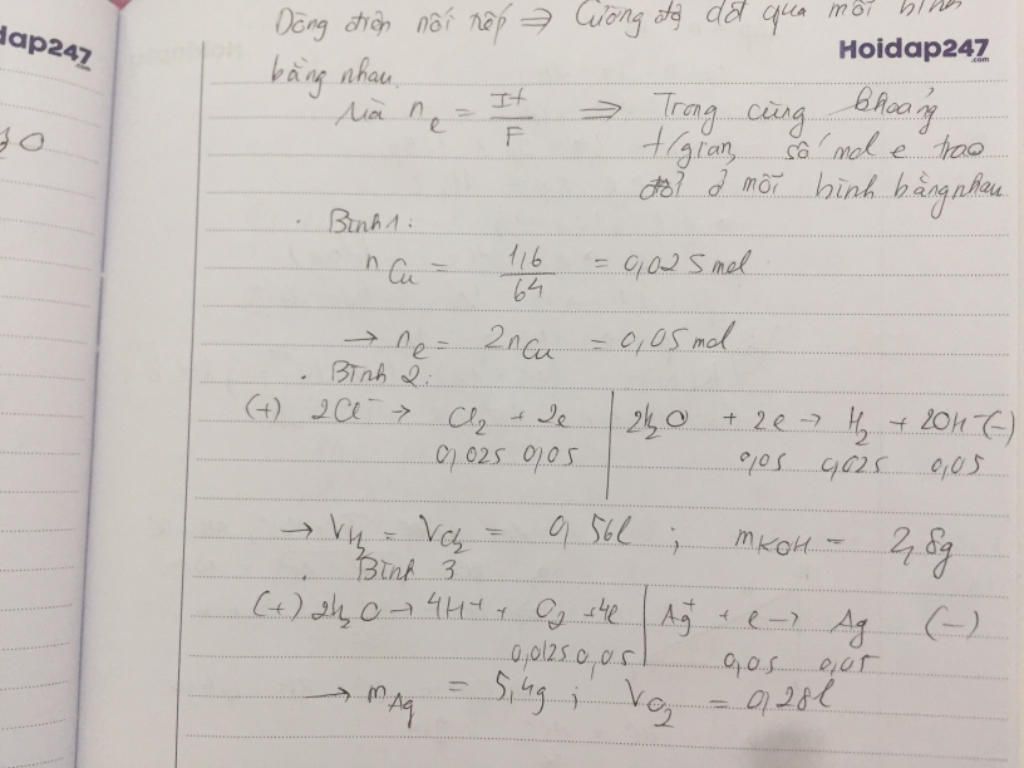 dap247
.com
Hoidap247
.com
30
Dòng điện nối tiếp => Cường độ dđ qua mỗi bình
bằng nhau.
Mà n_e = It/F => Trong cùng khoảng
t/gian, số mol e trao
đổi ở mỗi bình bằng nhau
. Bình 1:
n_Cu = 1,6/64 = 0,025 mol
→ n_e = 2n_Cu = 0,05 mol
. Bình 2:
(+) 2Cl⁻ → Cl₂ + 2e | 2H₂O + 2e → H₂ + 2OH⁻ (-)
0,025 0,05 | 0,05 0,025 0,05
→ V_H₂ = V_Cl₂ = 0,56l ; m_KOH = 2,8g
. Bình 3
(+) 2H₂O → 4H⁺ + O₂ + 4e | Ag⁺ + e → Ag (-)
0,0125 0,05 | 0,05 0,05
→ m_Ag = 5,4g ; V_O₂ = 0,28l